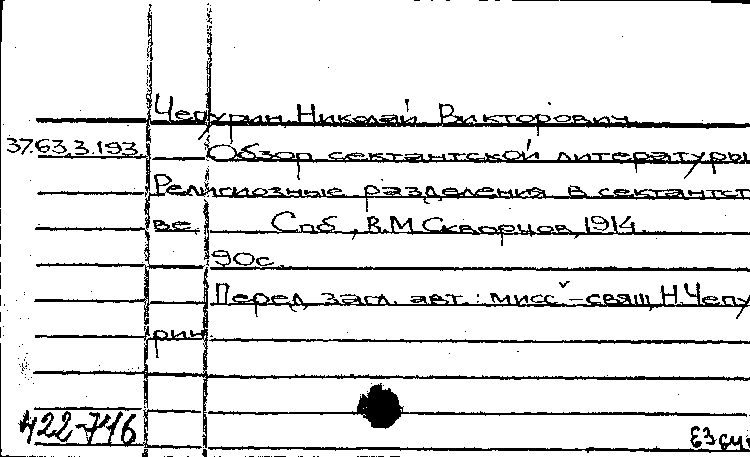 Чепурин, Николай Викторович.
37.63.3.193. Обзор сектантской литературы
Религиозные разделения в сектантст
ве. Спб., В.М. Скворцов, 1914.
90с.
Перед загл. авт.: мисс.-свящ. Н. Чепу
рин
422-746